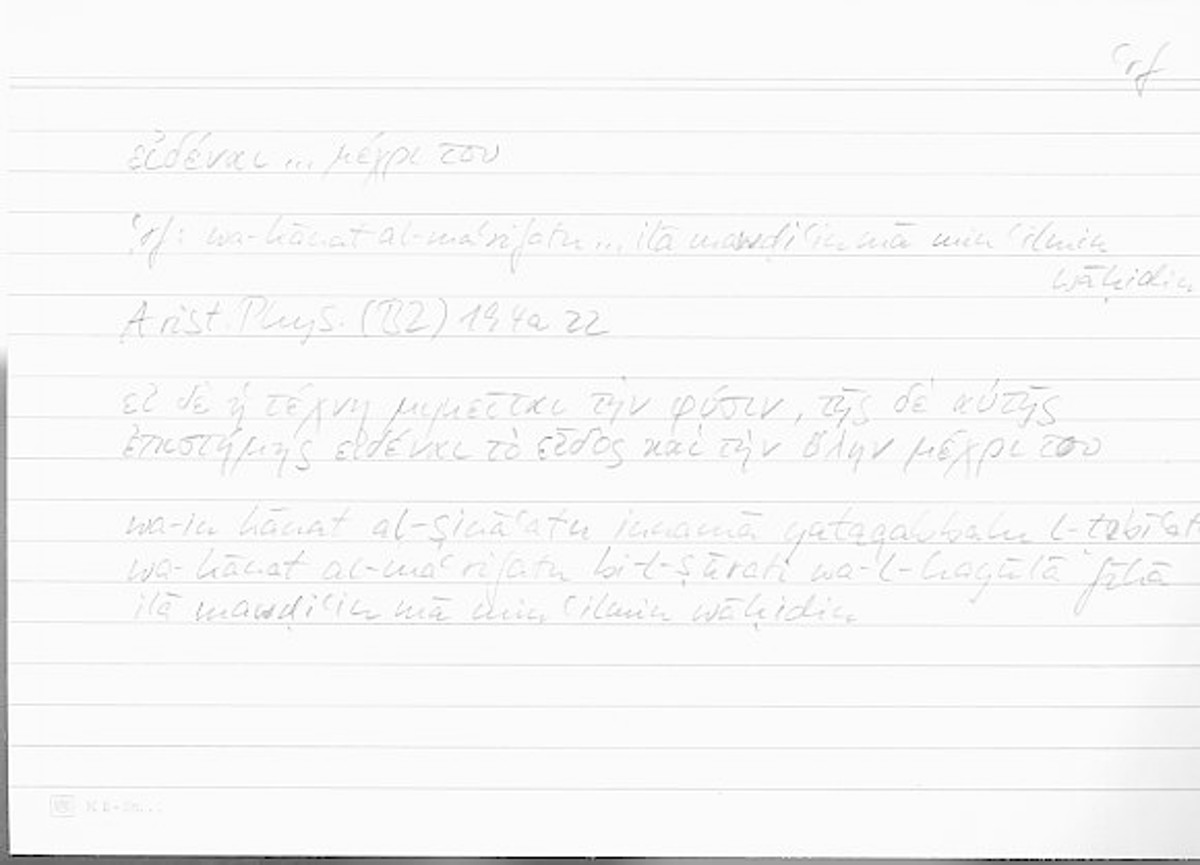 ʿrf
εἰδέναι ... μέχρι του
ʿrf: wa-kānat al-maʿrifatu ... ilā mawḍiʿin mā min ʿilmin
wāḥidin
Arist. Phys. (B2) 194a 22
εἰ δὲ ἡ τέχνη μιμεῖται τὴν φύσιν, τῆς δὲ αὐτῆς
ἐπιστήμης εἰδέναι τὸ εἶδος καὶ τὴν ὕλην μέχρι του
wa-in kānat al-ṣināʿatu innamā yataqabbalu l-ṭabīʿat
wa-kānat al-maʿrifatu bi-l-ṣūrati wa-l-hayūlā fīhā
ilā mawḍiʿin mā min ʿilmin wāḥidin